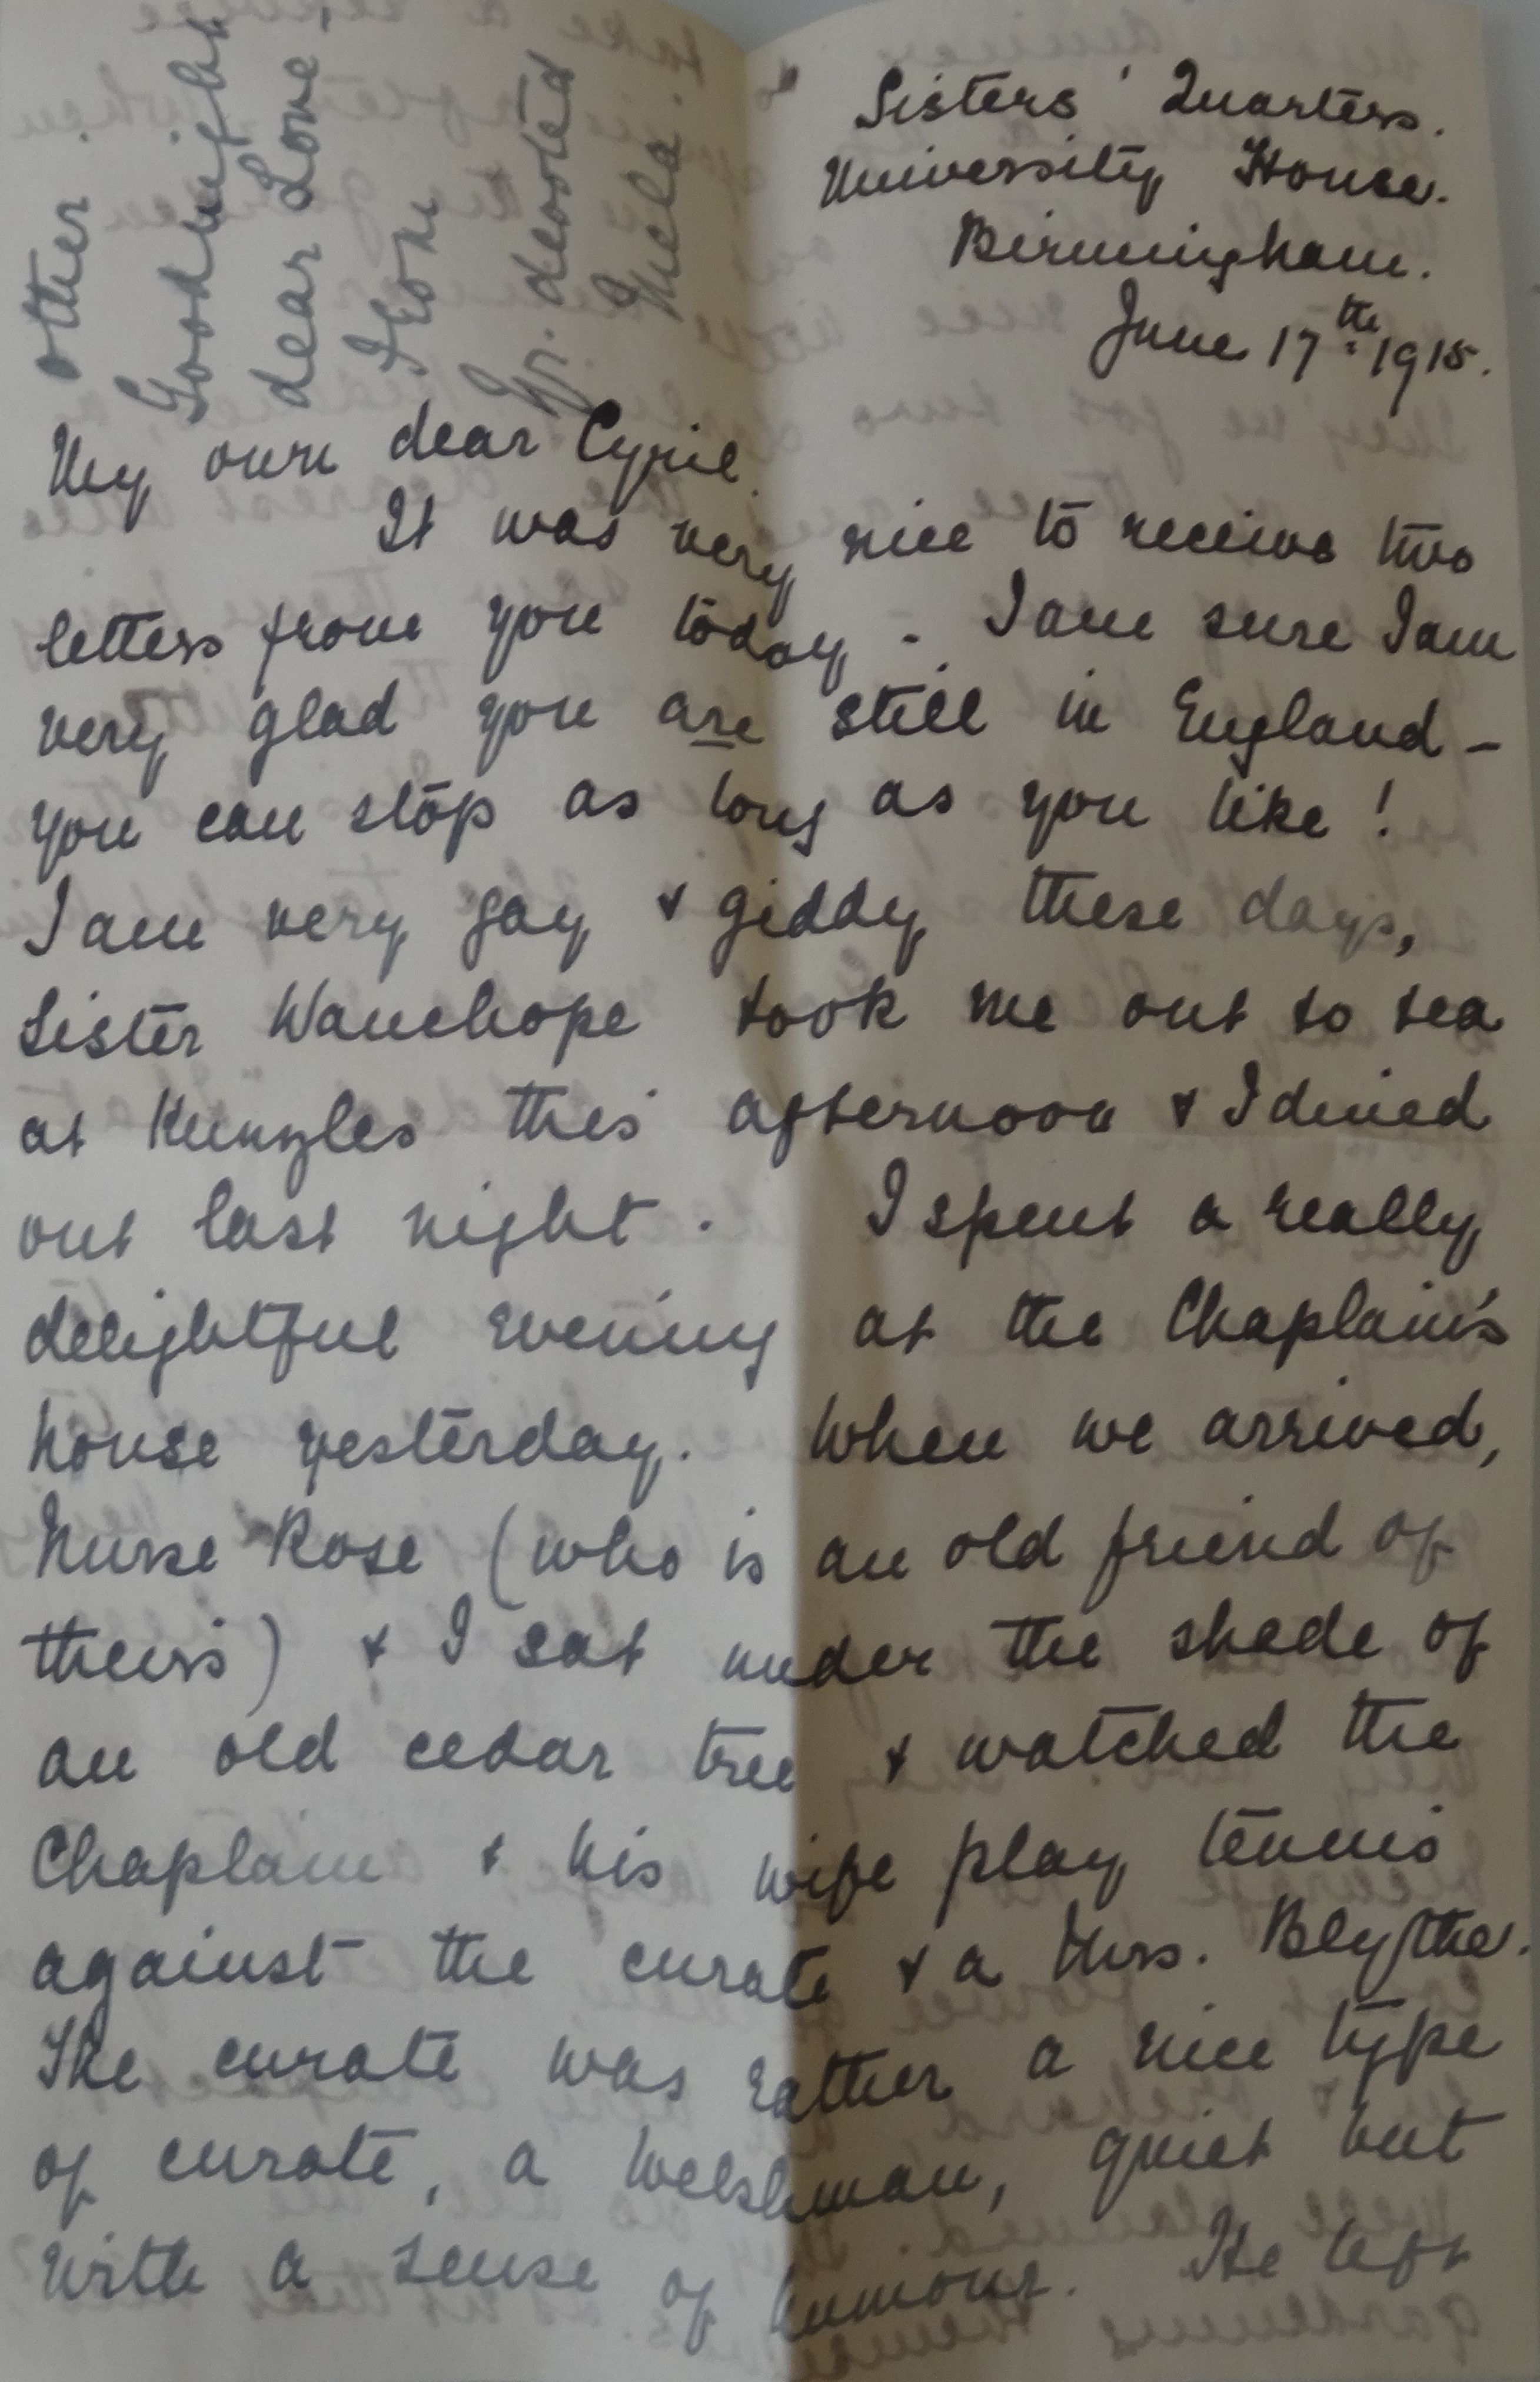 Sisters' Quarters.
University House.
Birmingham.
June 17th 1915.
My own dear Cyril.
It was very nice to receive two
letters from you today. I am sure I am
very glad you are still in England -
you can stop as long as you like!
I am very gay & giddy these days,
Sister Wauchope took me out to tea
at Kunzles this afternoon & I dined
out last night. I spent a really
delightful evening at the Chaplain's
house yesterday. When we arrived,
Nurse Rose (who is an old friend of
theirs) & I sat under the shade of
an old cedar tree & watched the
Chaplain & his wife play tennis
against the curate & a Mrs. Blythe.
The curate was rather a nice type
of curate, a Welshman, quiet but
with a sense of humour. He left
other.
Goodnight
dear Love,
From
Yr. devoted